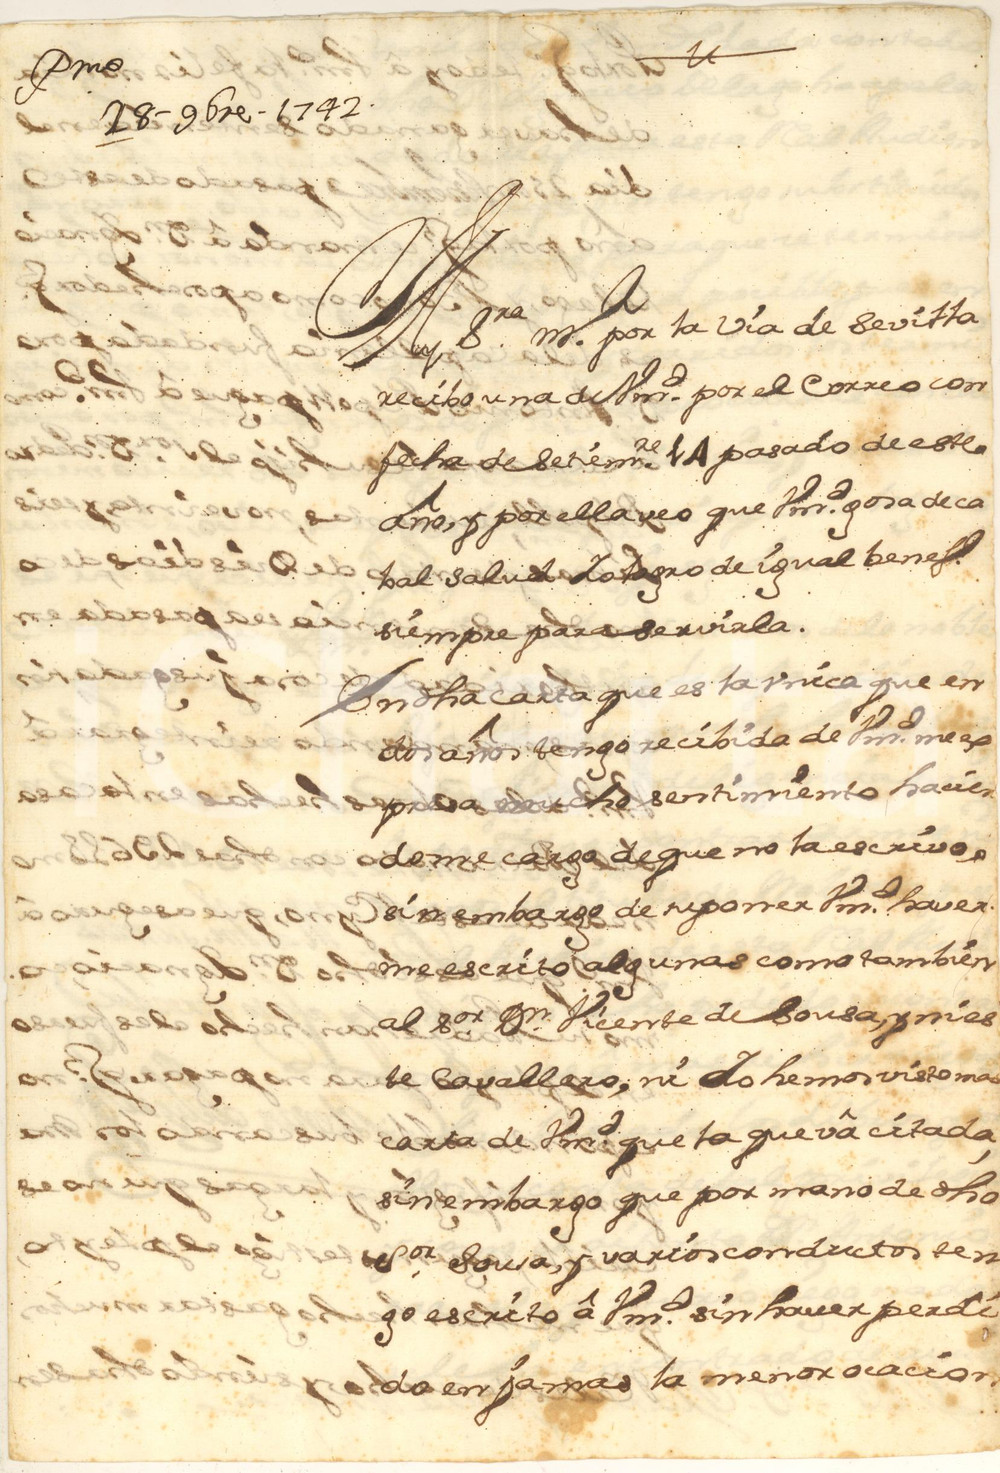 Pmo
18-9bre-1742.
Muy Sra. mª. por la Via de Sevilla
recibo una de Vmd. por el Correo con
fecha de Setiemre 14 pasado de este
Año, y por ella veo que Vmd. gosa de ca
bal salud Yo logro de igual benefº.
siempre para servirla.
En dha carta que es la vnica que en
dos años tengo recibida de Vmd. me ex
presa sentimiento hacien
dome cargo de que no la escrivo,
sin embargo de suponer Vmd. haver
me escrito algunas como tambien
al Sor. Dn. Vicente de Sousa, y ni es
te Cavallero, ni Yo hemos visto mas
carta de Vmd. que la que vâ citada,
sin embargo que por mano de dho
Sor. Sousa, y varios conductos ten
go escrito â Vmd. sin haver perdi
do en jamas la menor ocacion